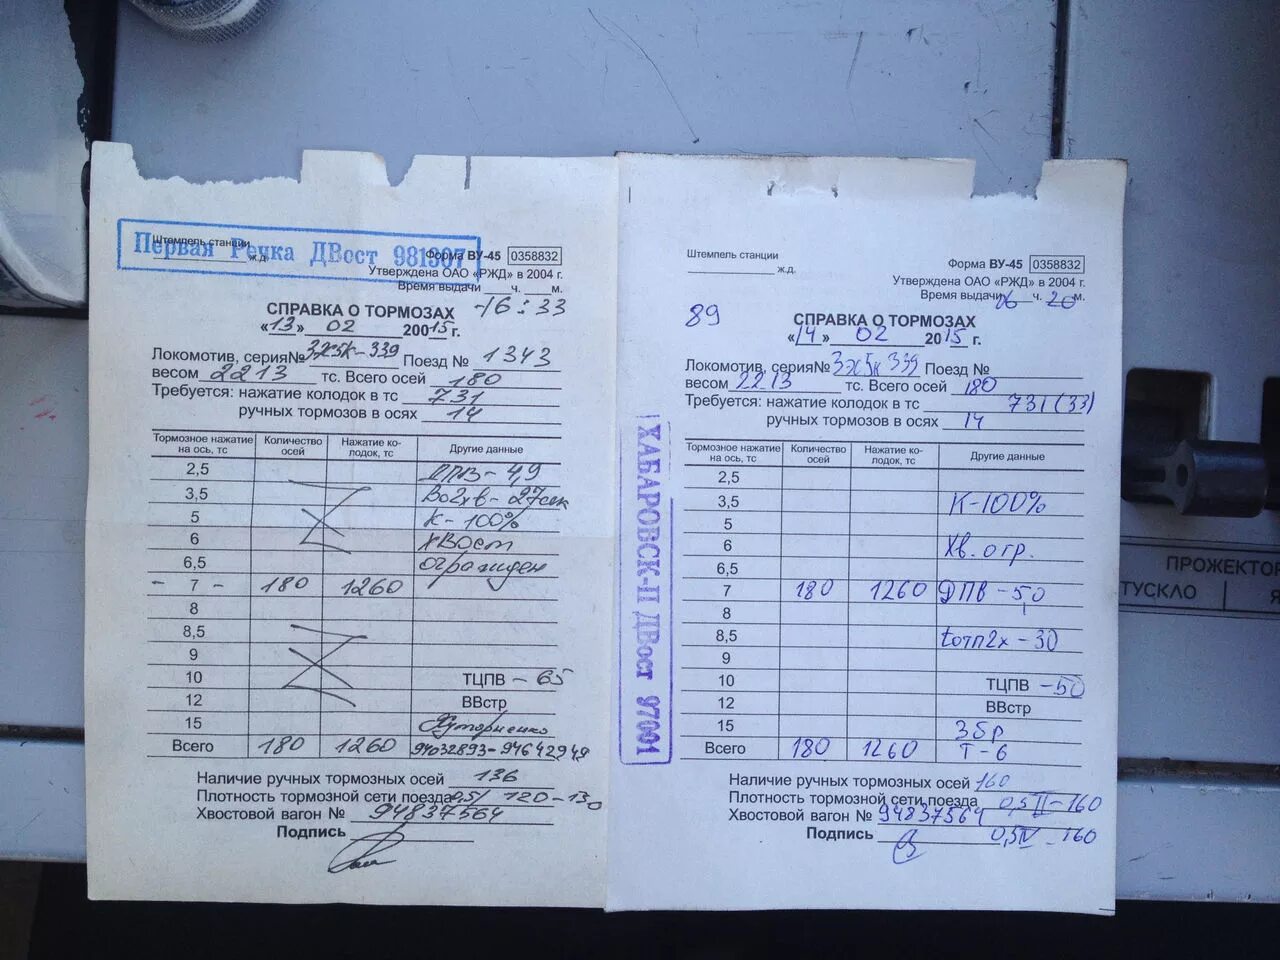 Первая Речка ДВост 981307
Штемпель станции
ж.д.
Форма ВУ-45 0358832
Утверждена ОАО «РЖД» в 2004 г.
Время выдачи ч. м.
16:33
СПРАВКА О ТОРМОЗАХ
«13» 02 20015 г.
Локомотив, серия№ 3ЭС5К-339 Поезд № 1343
весом 2213 тс. Всего осей 180
Требуется: нажатие колодок в тс 731
ручных тормозов в осях 14
Тормозное нажатие на ось, тс Количество осей Нажатие ко-лодок, тс Другие данные
2,5 - 4,9
3,5 - 27сек
5 К-100%
6 хвост
6,5 огражден
- 7 - 180 1260
8
8,5
9
10 ТЦПВ - 65
12 ВВстр
15
Всего 180 1260 94032893-94642949
Наличие ручных тормозных осей 136
Плотность тормозной сети поезда 0,5/ 120-130
Хвостовой вагон № 94837564
Подпись
Штемпель станции
ж.д.
Форма ВУ-45 0358832
Утверждена ОАО «РЖД» в 2004 г.
Время выдачи ч. 20 м.
89
СПРАВКА О ТОРМОЗАХ
«14» 02 2015 г.
Локомотив, серия№ 3ЭС5К 339 Поезд №
весом 2213 тс. Всего осей 180
Требуется: нажатие колодок в тс 731(33)
ручных тормозов в осях 14
ХАБАРОВСК-II ДВост 97001
Тормозное нажатие на ось, тс Количество осей Нажатие ко-лодок, тс Другие данные
2,5
3,5 К-100%
5
6 Хв. огр.
6,5
7 180 1260 ДПВ-50
8
8,5 tотп2х-30
9
10 ТЦПВ -50
12 ВВстр
15
Всего 180 1260 Т-6
Наличие ручных тормозных осей 160
Плотность тормозной сети поезда 0,5 II-160
Хвостовой вагон № 94837564
Подпись 0,5 IV-160
ПРОЖЕКТОР
ТУСКЛО